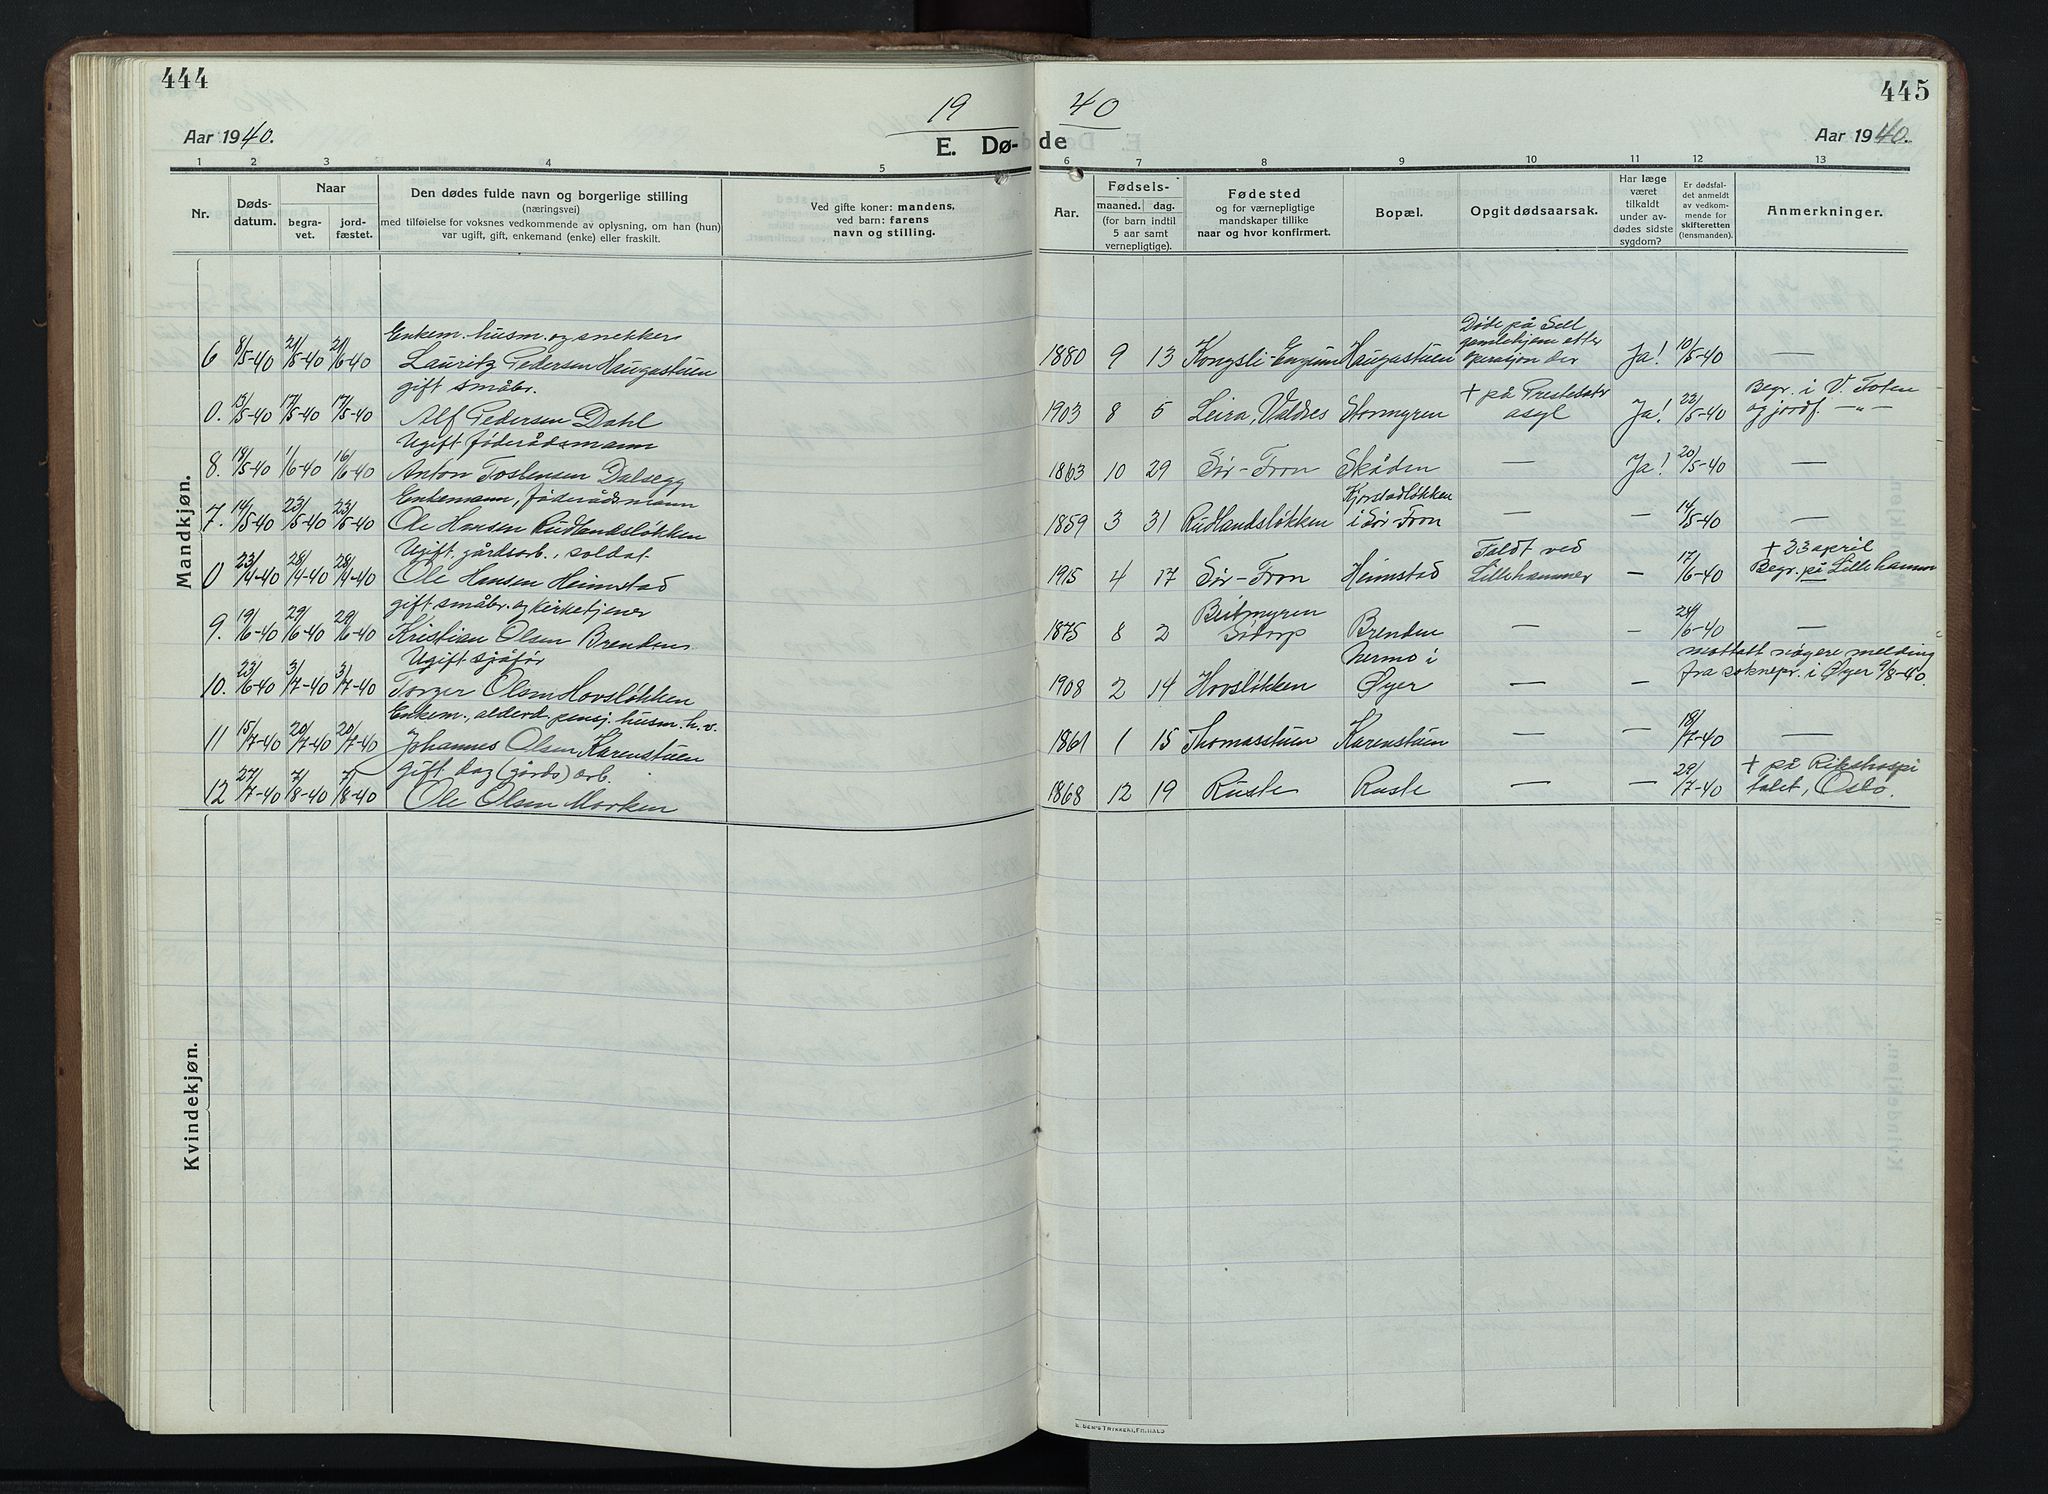 444
445
19 40
Aar 1940.
E. Døde
Aar 1940.
1 2 3 4 5 6 7 8 9 10 11 12 13
Nr.
Døds-
datum.
Naar
begra-
vet.
jord-
fæstet.
Den dødes fulde navn og borgerlige stilling
(næringsvei)
med tilføielse for voksnes vedkommende av oplysning, om han (hun)
var ugift, gift, enkemand (enke) eller fraskilt.
Ved gifte koner: mandens,
ved barn: farens
navn og stilling.
Aar.
Fødsels-
maaned. dag.
(for barn indtil
5 aar samt
vernepligtige).
Fødested
og for værnepligtige
mandskaper tillike
naar og hvor konfirmert.
Bopæl.
Opgit dødsaarsak.
Har læge
været
tilkaldt
under av-
dødes sidste
sygdom?
Er dødsfal-
det anmeldt
av vedkom-
mende for
skifteretten
(lensmanden).
Anmerkninger.
Mandkjøn.
Enkem. husm. og snekker
Døde på Sell
gamlehjem etter
6 8/5-40 21/5-40 21/6-40 Lauritz Pedersen Haugastuen 1880 9 13 Kongsli Haugastuen operasjon der Ja! 10/5-40 —
gift småbr.
+ på Prestesæter
Begr. i V. Toten
0. 13/5-40 17/5-40 17/5-40 Alf Pedersen Dahl 1903 8 5 Leira, Valdres Stormyren asyl Ja! 22/5-40 og jordf. —"—
Ugift føderådsmann
8. 18/5-40 1/6-40 16/6-40 Anton Tostensen Dalsegg 1863 10 29 Sør-Fron Skåden — Ja! 20/5-40 —
Enkemann, føderådsmann
Kjorstadløkken
7. 14/5-40 23/5-40 23/5-40 Ole Hansen Rudlandsløkken 1859 3 31 Rudlandsløkken i Sør Fron 14/5-40 —
Ugift gårdsarb., soldat
Faldt ved
+ 23 april
0 23/4-40 28/4-40 28/4-40 Ole Hansen Heimstad 1915 4 17 Sør-Fron Heimstad Lillehammer — 17/6-40 Begr. på Lillehamm
gift småbr. og kirketjener
9. 19/6-40 29/6-40 29/6-40 Kristian Olsen Brenden 1875 8 2 Beitmyren Sødorp Brenden — — 24/6-40 —
Ugift sjåfør
Nermo i
mottatt nøgere melding
10. 23/6-40 3/7-40 3/7-40 Torger Olsen Hovsløkken 1908 2 14 Hovsløkken Øyer — — fra soknepr. i Øyer 9/8-40.
Enkem., alderd. pensj. husm. h. v.
11 15/7-40 20/7-40 20/7-40 Johannes Olsen Karenstuen 1861 1 15 Thomasstuen Karenstuen — — 18/7-40 —
gift dag (gårds) arb.
+ på Rikshospi
12 27/7-40 7/8-40 7/8-40 Ole Olsen Morken 1868 12 19 Ruste Ruste — — 29/7-40 talet, Oslo.
Kvindekjøn.